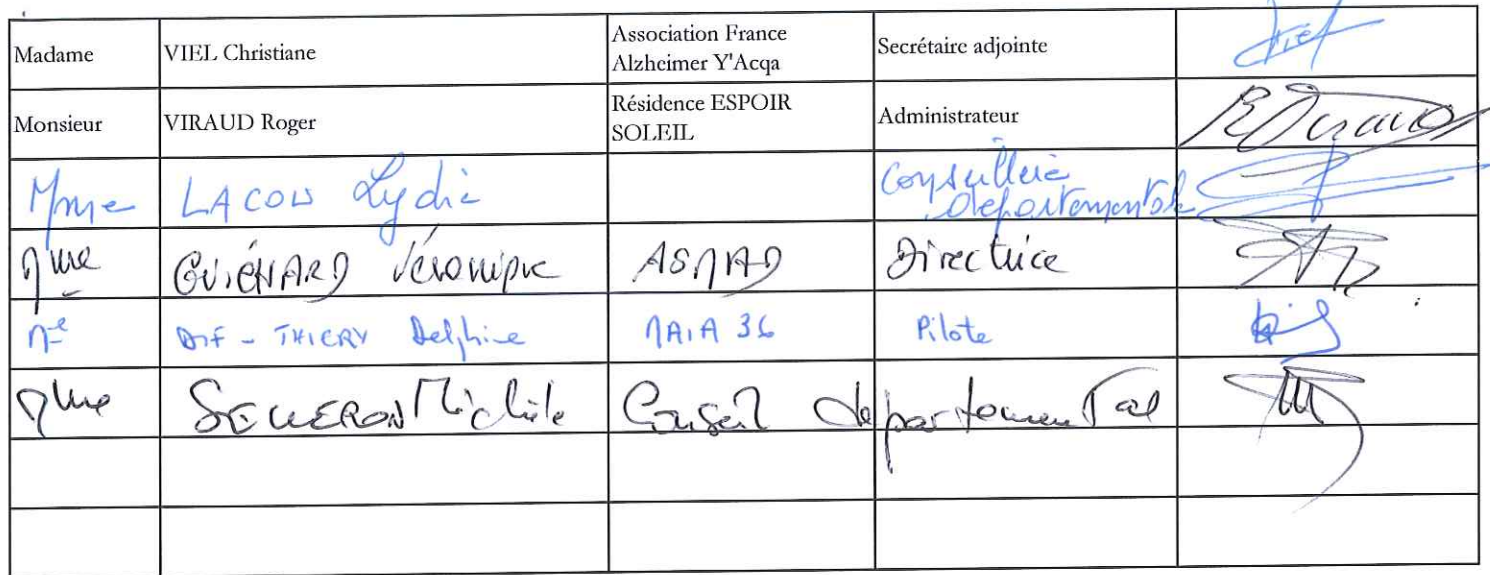 Madame VIEL Christiane Association France Alzheimer Y'Acqa Secrétaire adjointe Viel
Monsieur VIRAUD Roger Résidence ESPOIR SOLEIL Administrateur R Viraud
Mme LACOU Lydie Conseillère Départementale
Mme GUIÉNARD Véronique ASMAD Directrice
Me DIF - THIERY Delphine MAIA 36 Pilote
Mme Michèle Conseil departemental